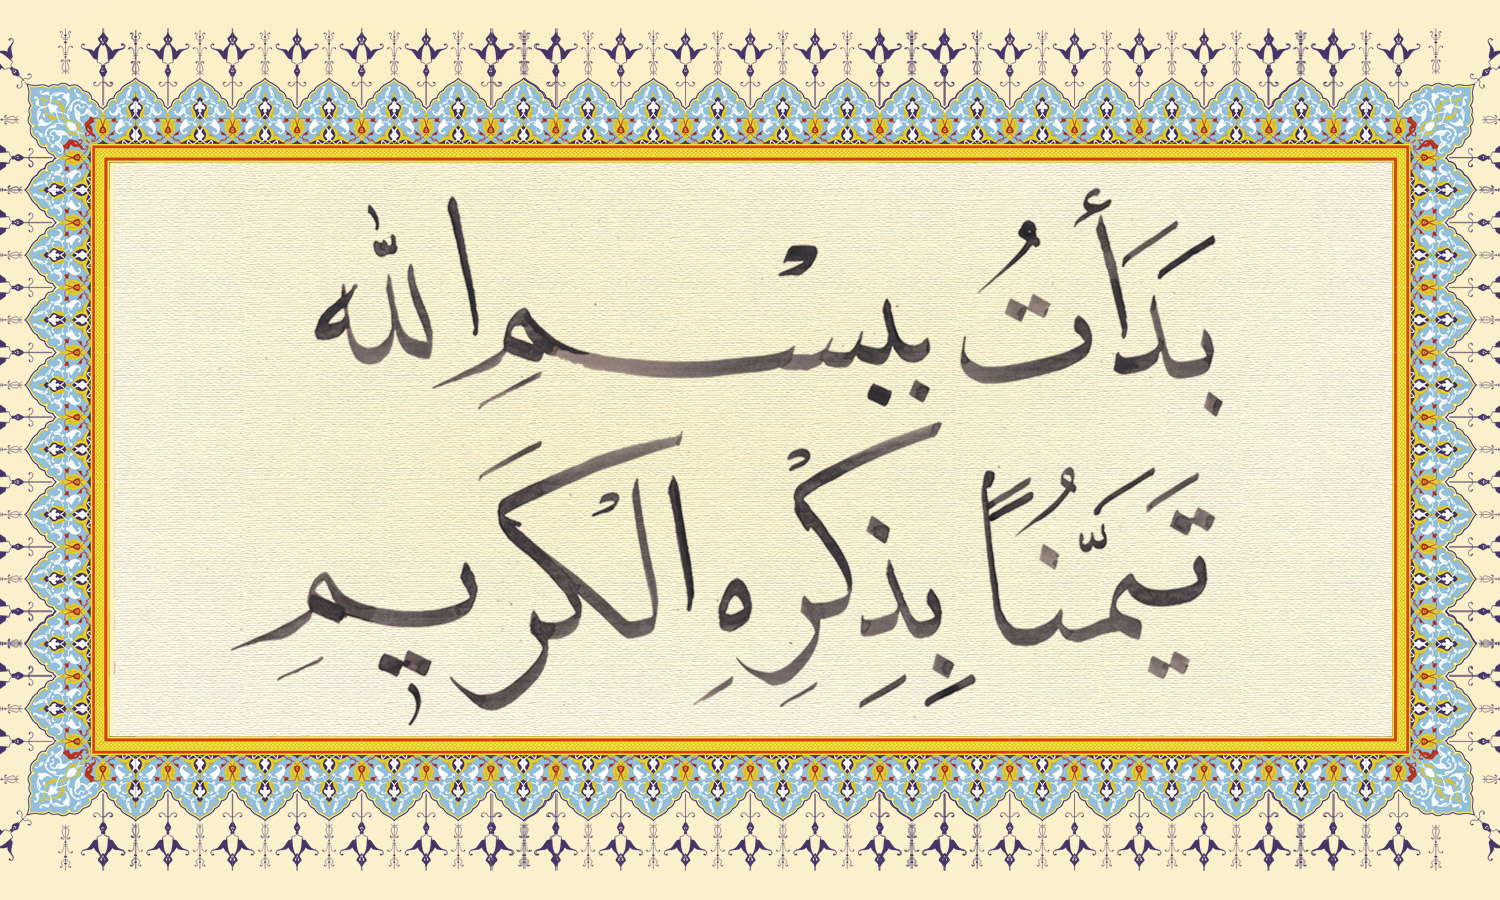 بَدَأتُ ببسْمِ اللّٰه
تَيَمُّناً بِذِكْرِهِ الْكَرِيمِ